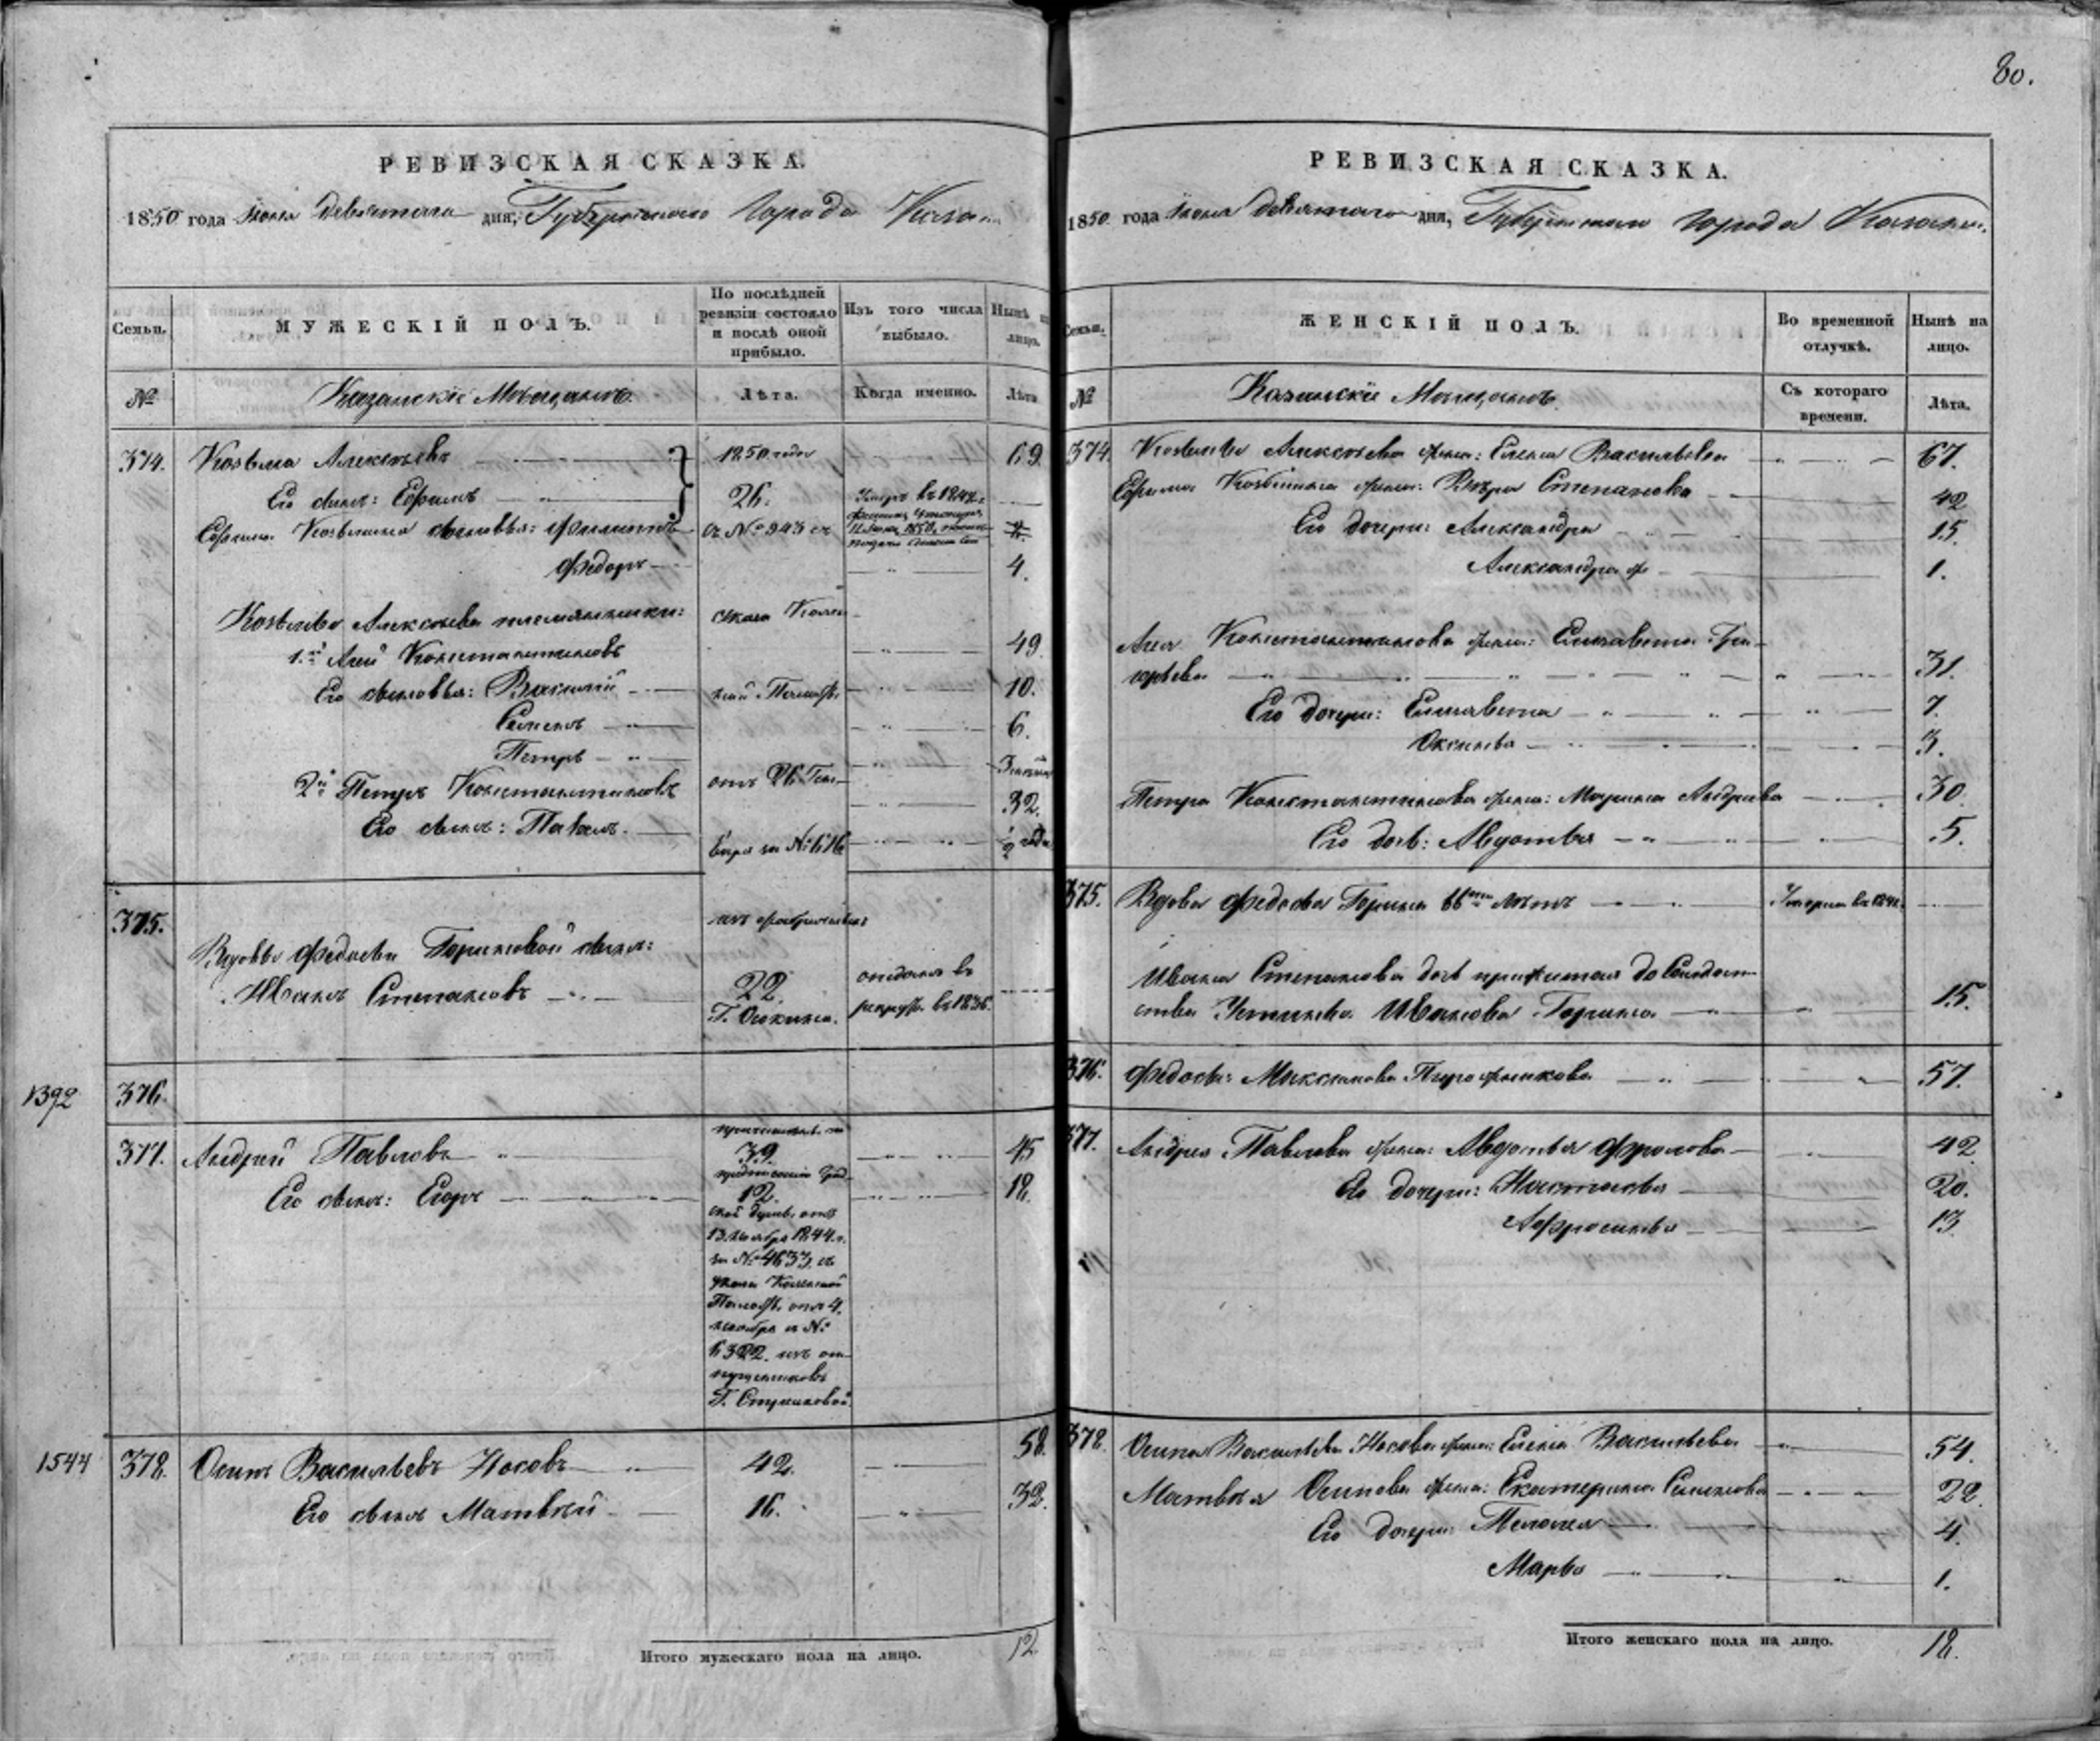 80.
РЕВИЗСКАЯ СКАЗКА.
1850 года Іюня девятаго дня, Губернскаго Города Казани
Семьи.
МУЖЕСКІЙ ПОЛЪ.
По послѣдней ревизіи состояло и послѣ оной прибыло.
Изъ того числа выбыло.
Нынѣ на лицо.
№
Казанскіе Мѣщане
Лѣта.
Когда именно.
Лѣта
374. Козьма Алексѣевъ 1850 года 69.
Его сынъ: Ефимъ 26. Умеръ въ 1842 г.
Ефима Козьмина сыновья: Филиппъ съ № 943 съ
Федоръ 4.
Козьмы Алексѣева племянники: указа Казен
1й Агей Константиновъ 49.
Его сыновья: Василій ной Палаты 10.
Семенъ 6.
Петръ
2й Петръ Константиновъ отъ 26 Ген 32.
Его сынъ: Павелъ. варя за № 616 1/2 года
375. изъ фабричныхъ
Вдовы Федосьи Гориновой сынъ:
Иванъ Степановъ 22. отданъ въ рекруты въ 1836.
Г. Осокина.
1392 376.
377. Андрей Павловъ 39. 45
Его сынъ: Егоръ 12. 18.
предписанію Град
ской Думы отъ
13 ноября 1844 г.
за № 4633, съ
указа Казенной
Палаты отъ 4.
ноября за №
6322. изъ от
пущенниковъ
Г. Стрѣлковой.
1544 378. Осипъ Васильевъ Носовъ 42. 58.
Его сынъ Матвѣй 16. 32.
Итого мужескаго пола на лицо. 12
РЕВИЗСКАЯ СКАЗКА.
1850 года Іюня девятаго дня, Губернскаго Города Казани.
Семьи.
ЖЕНСКІЙ ПОЛЪ.
Во временной отлучкѣ.
Нынѣ на лицо.
№
Казанскіе Мѣщане
Съ котораго времени.
Лѣта.
374. Козьмы Алексѣева жена: Елена Васильева 67.
Ефима Козьмина жена: Вѣра Степанова 42
Его дочери: Александра 15.
Александра же 1.
Агея Константинова жена: Елизавета Гри
горьева 31.
Его дочери: Елизавета 7.
Оксинья 3.
Петра Константинова жена: Марина Андреева 30.
Его дочь: Авдотья 5.
375. Вдова Федосья Горина 66ти лѣтъ Умерла въ 1841.
Ивана Степанова дочь прижитая до Солдат
ства Устинья Иванова Горина 15.
376. Федосья Максимова Пирожникова 57.
377. Андрея Павлова жена: Авдотья Фролова 42.
Его дочери: Настасья 20.
Афросинья 13.
378. Осипа Васильева Носова жена: Елена Васильева 54.
Матвѣя Осипова жена: Екатерина Семенова 22.
Его дочери: Пелагея 4.
Марья 1.
Итого женскаго пола на лицо. 18.